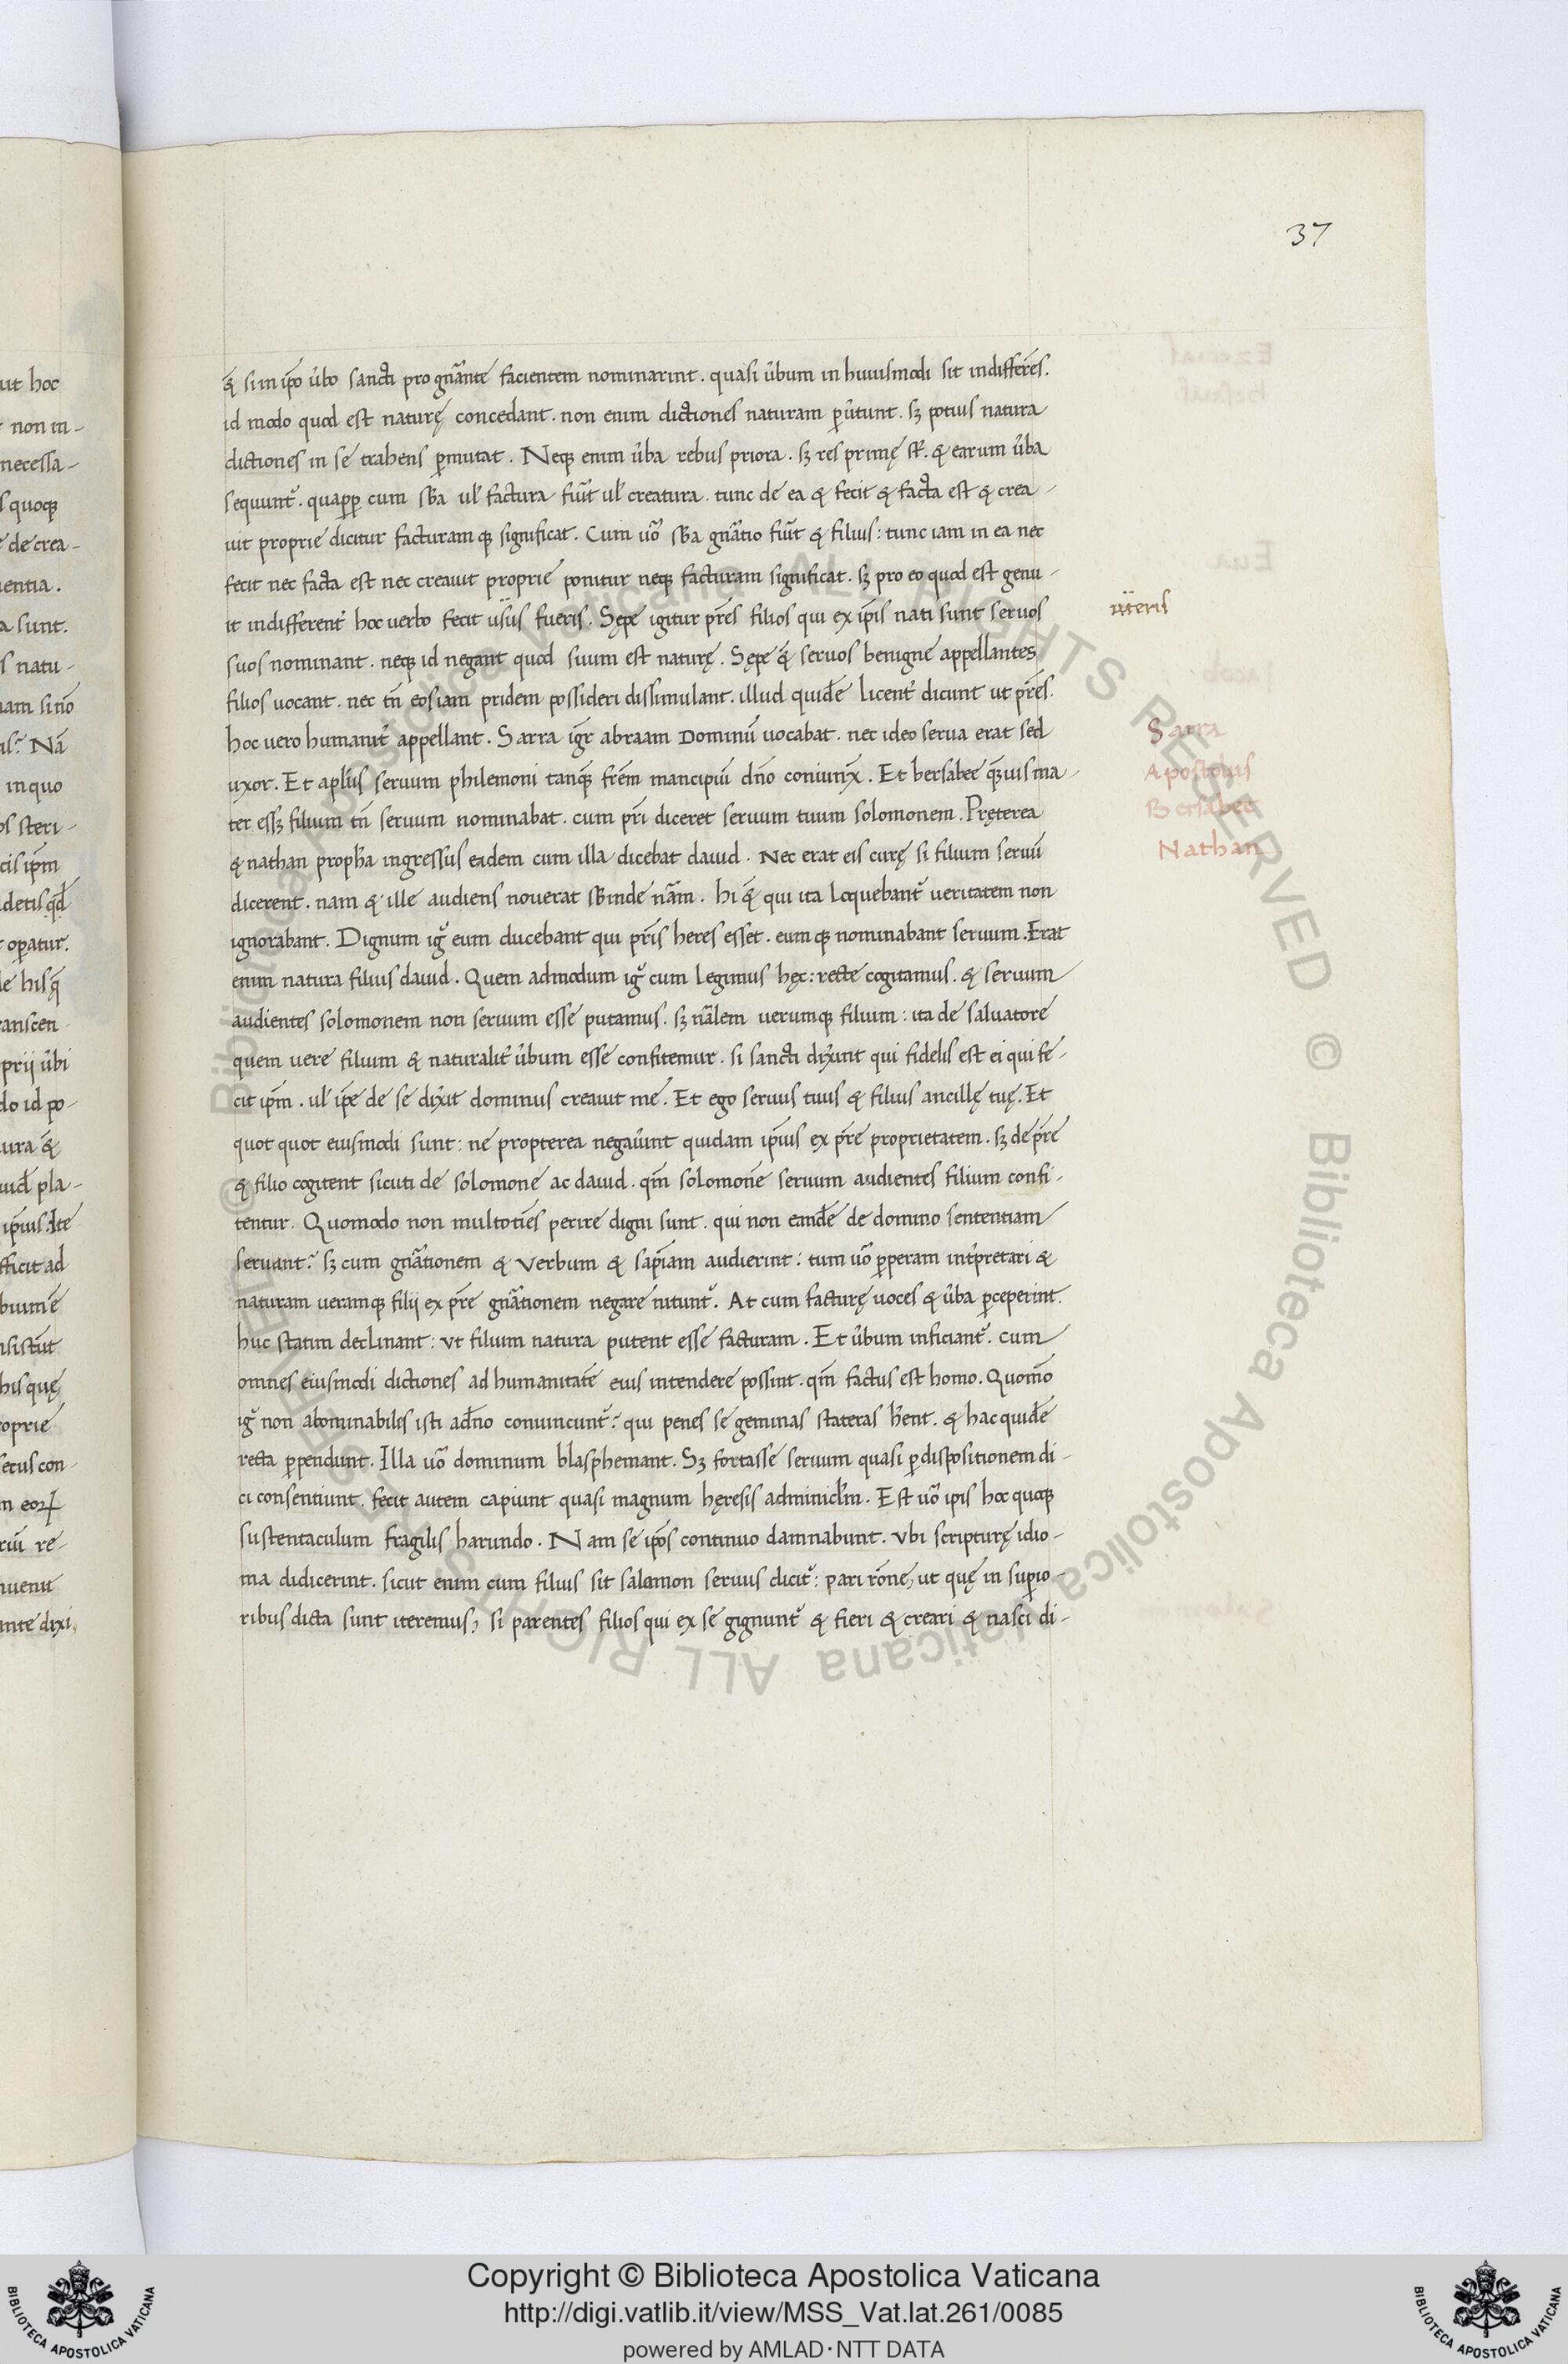 37
& si in ip̄o ūbo sancti pro gn̄ante facientem nominarint. quasi ūbum in huiusmodi sit indifferēs.
id modo quod est naturę concedant. non enim dictiones naturam ꝑūtunt. sꝫ potius natura
dictiones in se trahens ꝑmutat. Neqꝫ enim ūba rebus priora. sꝫ res primę st̄. & earum ūba
sequunt᷑. quaꝓꝑ cum sb̄a ul̄ factura fūit ul̄ creatura. tunc de ea & fecit & facta est & crea-
uit proprie dicitur facturamqꝫ significat. Cum uō sb̄a gn̄atio fūit & filius: tunc iam in ea nec
fecit nec facta est nec creauit proprie ponitur neqꝫ facturam significat. sꝫ pro eo quod est genu-
it indifferent̄ hoc uerbo fecit usus fueris. Sępe igitur pr̄es filios qui ex ip̄is nati sunt seruos
uteris
suos nominant. neqꝫ id negant quod suum est naturę. Sępe & seruos benigne appellantes
filios uocant. nec tn̄ eos iam pridem possideri dissimulant. illud quidē licent̄ dicunt ut pr̄es.
hoc uero humanit̄ appellant. Sarra igr̄ abraam Dominū uocabat. nec ideo serua erat sed
Sarra
uxor. Et apl̄us seruum philemoni tanq̄ꝫ frēm mancipiū dn̄o coniunx̄. Et bersabee q̄ꝫuis ma-
Apostolus
ter essꝫ filium tn̄ seruum nominabat. cum pr̄i diceret seruum tuum solomonem. Pręterea
Bersabee
& nathan proph̄a ingressus eadem cum illa dicebat dauid. Nec erat eis curę si filium seruū
Nathan
dicerent. nam & ille audiens nouerat sb̄inde nām. hi & qui ita loquebant᷑ ueritatem non
ignorabant. Dignum ig᷑ eum ducebant qui pr̄is heres esset. eumqꝫ nominabant seruum. Erat
enim natura filius dauid. Quem admodum ig᷑ cum legimus hęc: recte cogitamus. & seruum
audientes solomonem non seruum esse putamus. sꝫ nālem uerumqꝫ filium: ita de saluatore
quem uere filium & naturalit̄ ūbum esse confitemur. si sancti dix̄unt qui fidelis est ei qui fe-
cit ip̄m. ul̄ ip̄e de se dix̄it dominus creauit me. Et ego seruus tuus & filius ancillę tuę. Et
quot quot eiusmodi sunt: ne propterea negaūint quidam ip̄ius ex pr̄e proprietatem. sꝫ de pr̄e
& filio cogitent sicuti de solomone ac dauid. qm̄ solomonē seruum audientes filium confi-
tentur. Quomodo non multotiēs perire digni sunt. qui non eandē de domino sententiam
seruant? sꝫ cum gn̄ationem & Verbum & sapiam audierint: tum uō ꝑperam int̄pretari &
naturam ueramqꝫ filij ex pr̄e gn̄ationem negare nitunt᷑. At cum facturę uoces & ūba ꝑceperint.
huc statim declinant: vt filium natura putent esse facturam. Et ūbum inficiant᷑. cum
omnes eiusmodi dictiones ad humanitatē eius intendere possint. qm̄ factus est homo. Quomō
ig᷑ non abominabiles isti a dn̄o conuincunt᷑? qui penes se geminas stateras hēnt. & hac quidē
recta ꝑpendunt. Illa uō dominum blasphemant. Sꝫ fortasse seruum quasi ꝑ dispositionem di-
ci consentiunt. fecit autem capiunt quasi magnum hęresis adminicl̄m. Est uō ipis hoc quoqꝫ
sustentaculum fragilis harundo. Nam se ip̄os continuo damnabunt. vbi scripturę idio-
ma didicerint. sicut enim cum filius sit salomon seruus dicit᷑: pari rōne, ut quę in suꝑio-
ribus dicta sunt iteremus, si parentes filios qui ex se gignunt᷑ & fieri & creari & nasci di-
Copyright © Biblioteca Apostolica Vaticana
http://digi.vatlib.it/view/MSS_Vat.lat.261/0085
powered by AMLAD·NTT DATA